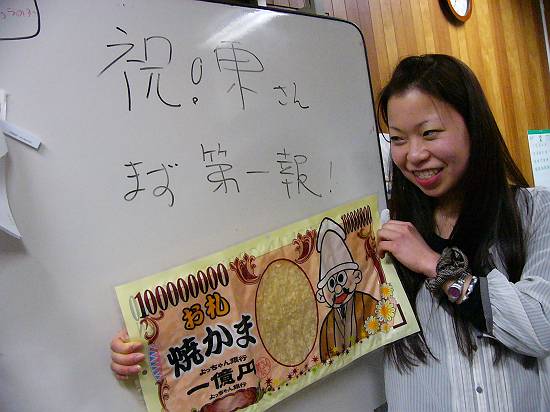 祝!東さん
まず第一報!
100000000
お札
焼かま
よっちゃん銀行
一億円
よっちゃん銀行
100000000